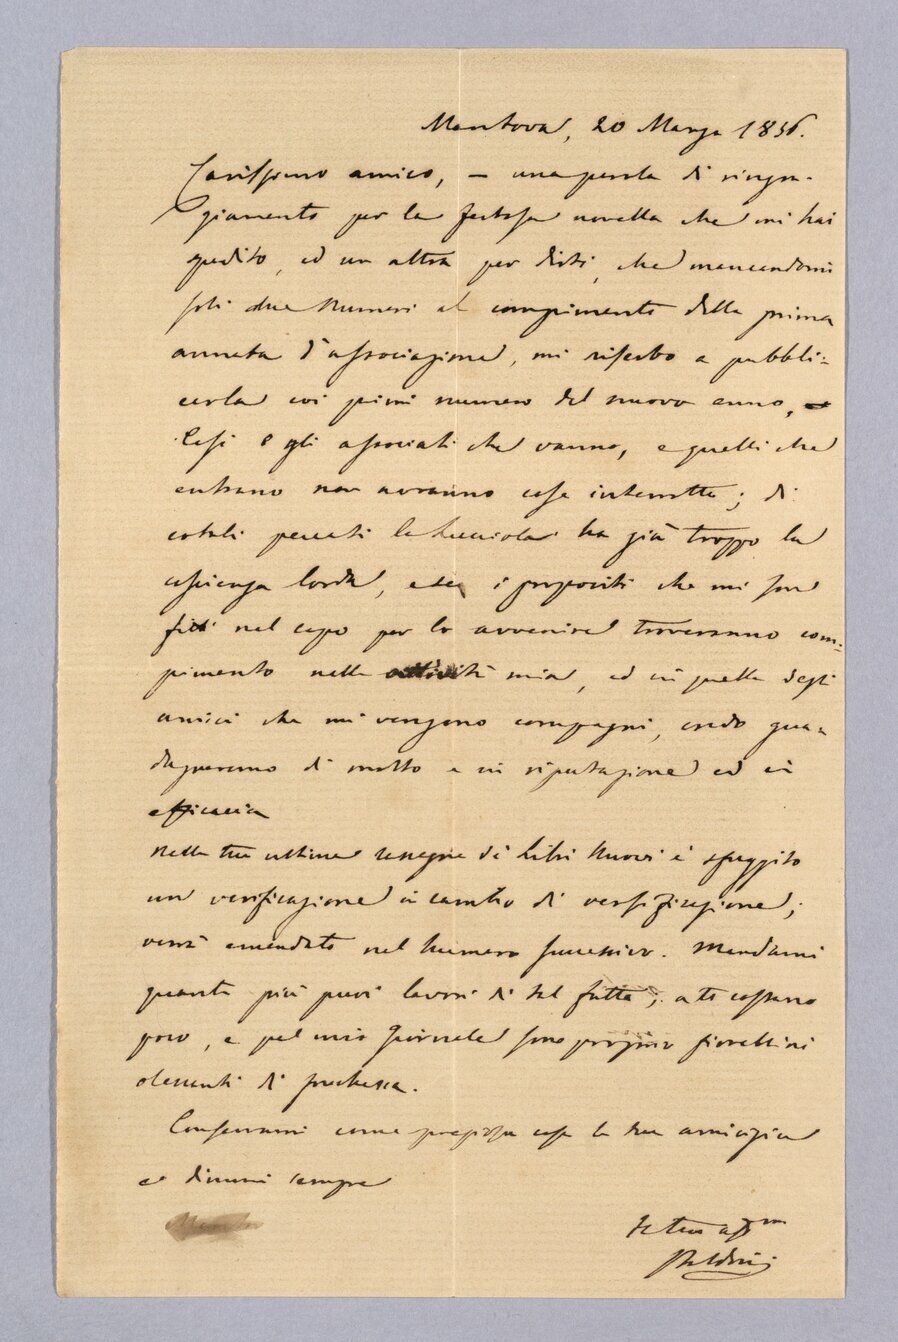 Mantova, 20 Marzo 1856.
Carissimo amico, — una parola di ringra-
ziamento per la festosa novella che mi hai
spedito, ed un altra per dirti, che mancandomi
soli due Numeri al compimento della prima
annata d'associazione, mi riserbo a pubbli=
carla coi primi numero del nuovo anno,
Così e gli associati che vanno, e quelli che
entrano non avranno cose interrotte; di
cotali peccati la Lucciola ha già troppo la
coscienza lorda, e se i propositi che mi son
fitti nel capo per lo avvenire troveranno com=
pimento nella attività mia, ed in quella degli
amici che mi vengono compagni, credo gua=
dagneremo di molto e in riputazione ed in
efficacia
Nella tua ultima rassegna di Libri Nuovi è sfuggito
un verificazione in cambio di versificazione;
verrà emendato nel Numero successivo. Mandami
quanti più puoi lavori di tal fatta; a te costano
poco, e pel mio Giornale sono proprio fiorellini
olezzanti di freschezza.
Conservami come preziosa cosa la tua amicizia
e dimmi sempre
Il tuo aff.mo
Boldrini